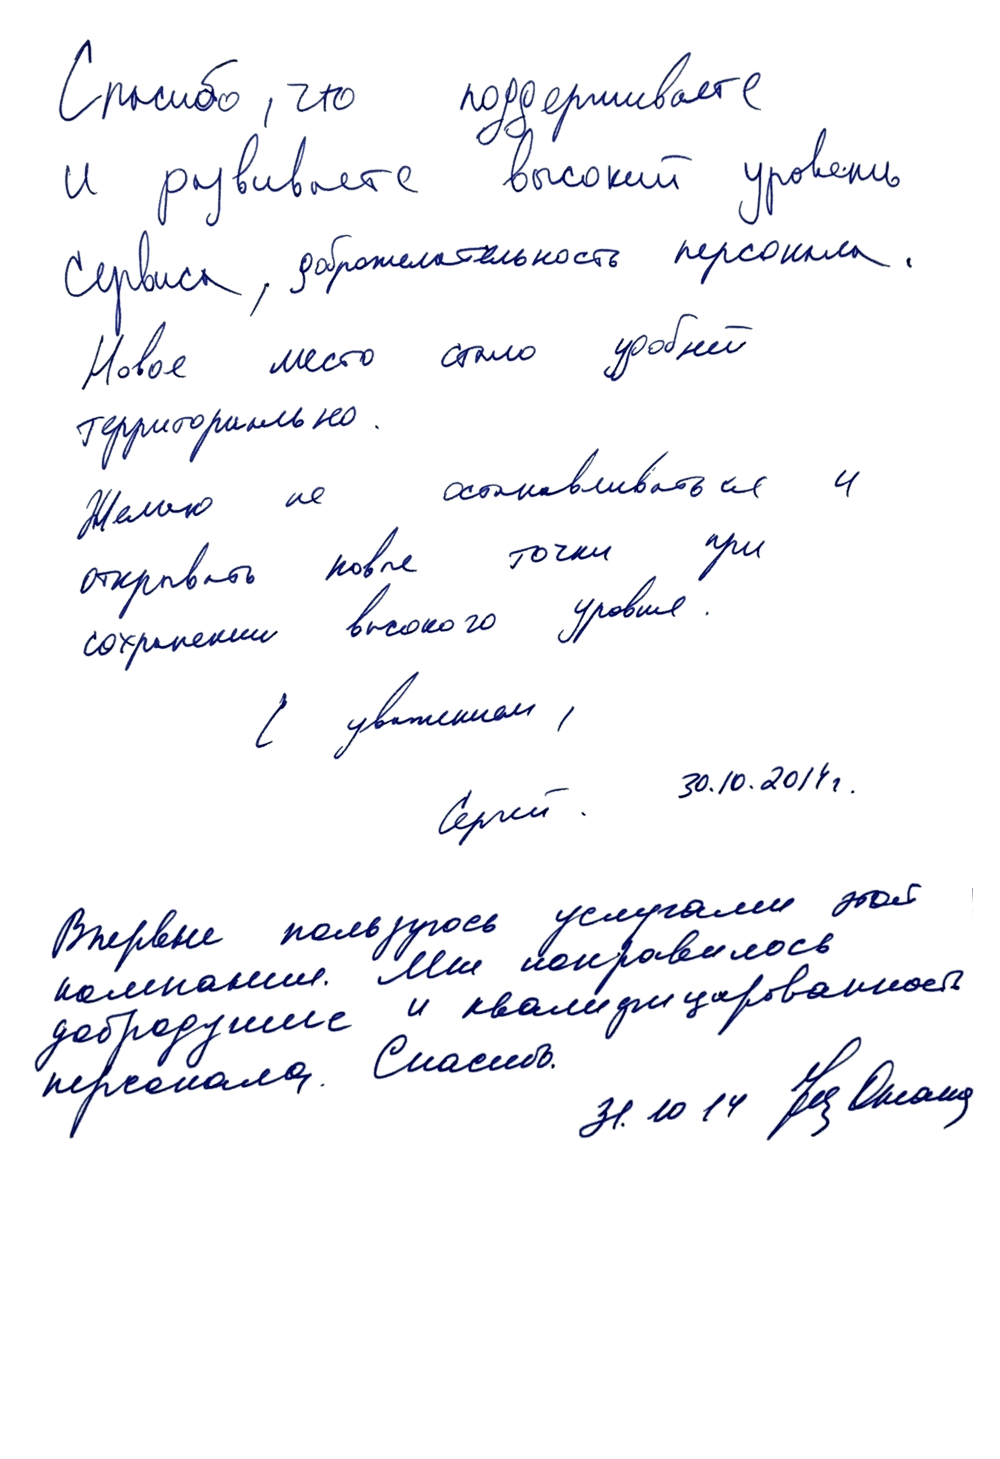 Спасибо, что поддерживаете
и развиваете высокий уровень
сервиса, доброжелательность персонала.
Новое место стало удобней
территориально.
Желаю не останавливаться и
открывать новые точки при
сохранении высокого уровня.
С уважением,
Сергей. 30.10.2014г.
Впервые пользуюсь услугами этой
компании. Мне понравилось
добродушие и квалифицированность
персонала. Спасибо.
31.10 14 Оксана